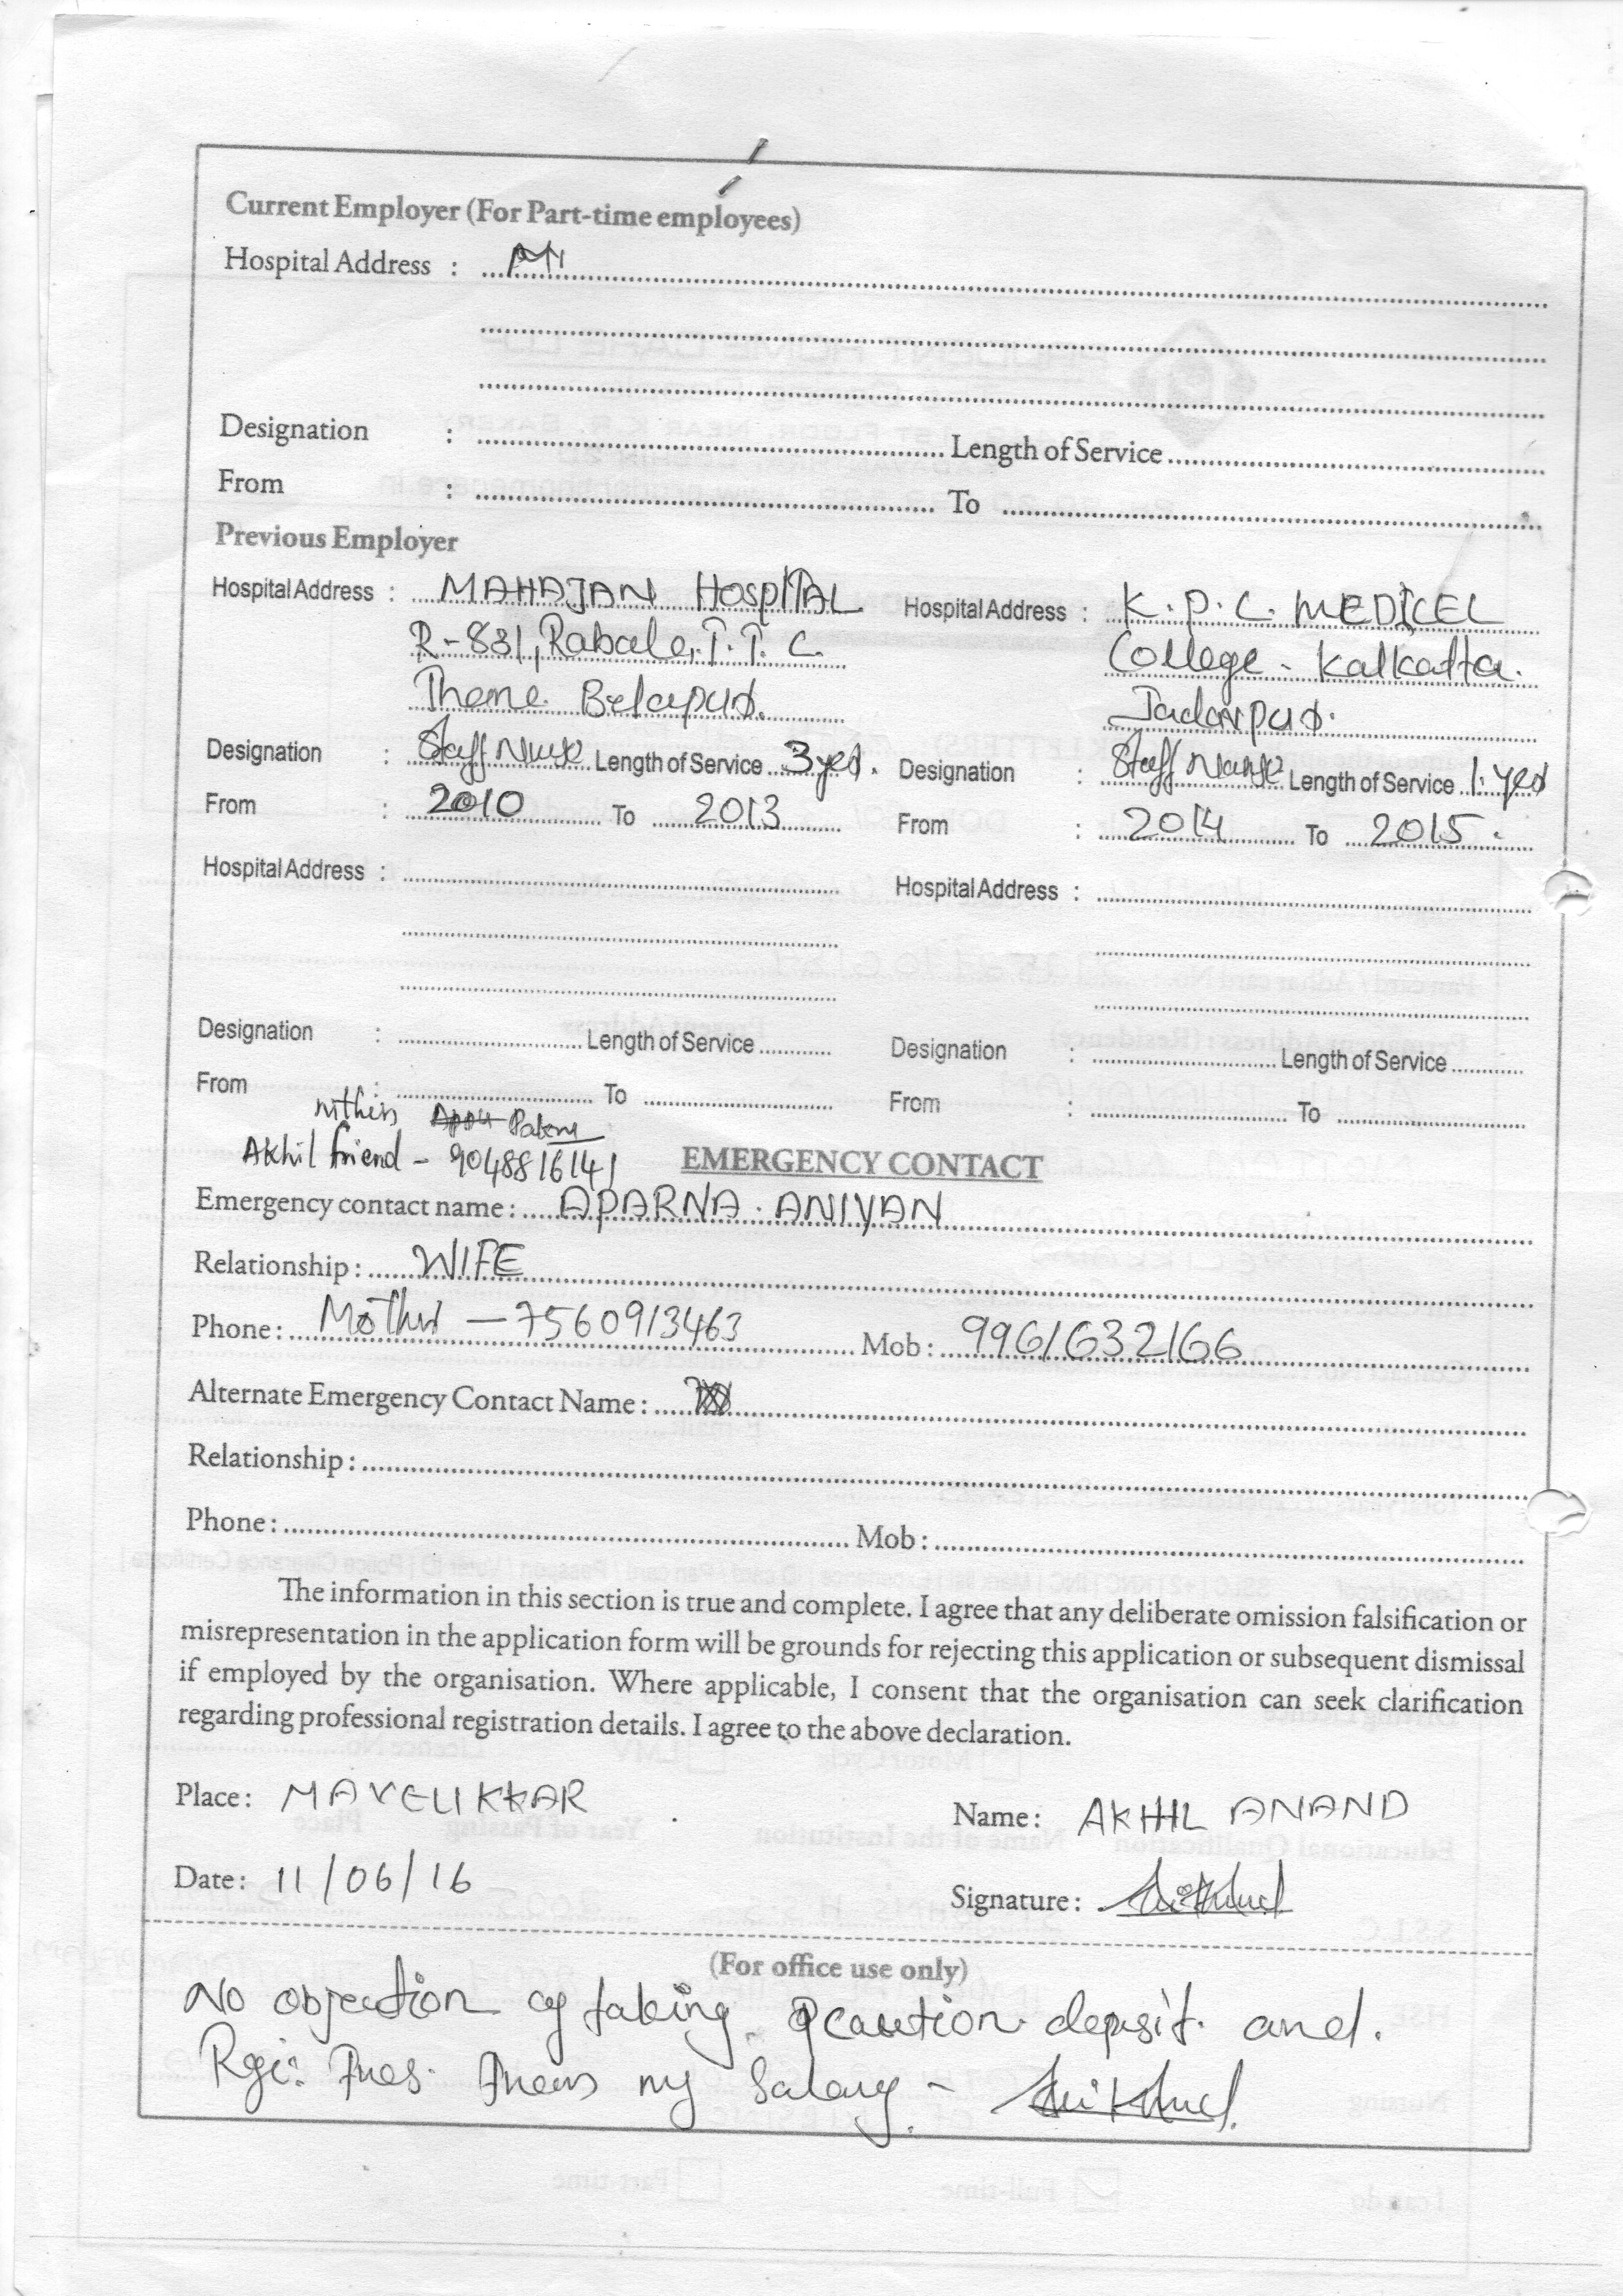 Current Employer (For Part-time employees)
Hospital Address :
Designation : Length of Service
From : To
Previous Employer
Hospital Address : MAHAJAN HospITAL
R-831, Rabale, T. T. C.
Thane Belapur.
Designation : Staff Nurse Length of Service 3 yer.
From : 2010 To 2013
Hospital Address : K. P. C. MEDICEL
College - Kalkatta.
Jadavpur.
Designation : Staff Nurse Length of Service 1. yer
From : 2014 To 2015.
Hospital Address :
Designation : Length of Service
From : To
Hospital Address :
Designation : Length of Service
From : To
nithin
Akhil friend - 9048816141
EMERGENCY CONTACT
Emergency contact name : APARNA . ANIYAN
Relationship : WIFE
Phone : Mother - 7560913463 Mob : 9961632166
Alternate Emergency Contact Name :
Relationship :
Phone : Mob :
The information in this section is true and complete. I agree that any deliberate omission falsification or
misrepresentation in the application form will be grounds for rejecting this application or subsequent dismissal
if employed by the organisation. Where applicable, I consent that the organisation can seek clarification
regarding professional registration details. I agree to the above declaration.
Place : MAVELIKKAR
Name : AKHIL ANAND
Date : 11/06/16
Signature :
(For office use only)
No objection of taking caution deposit. and.
my Salary -